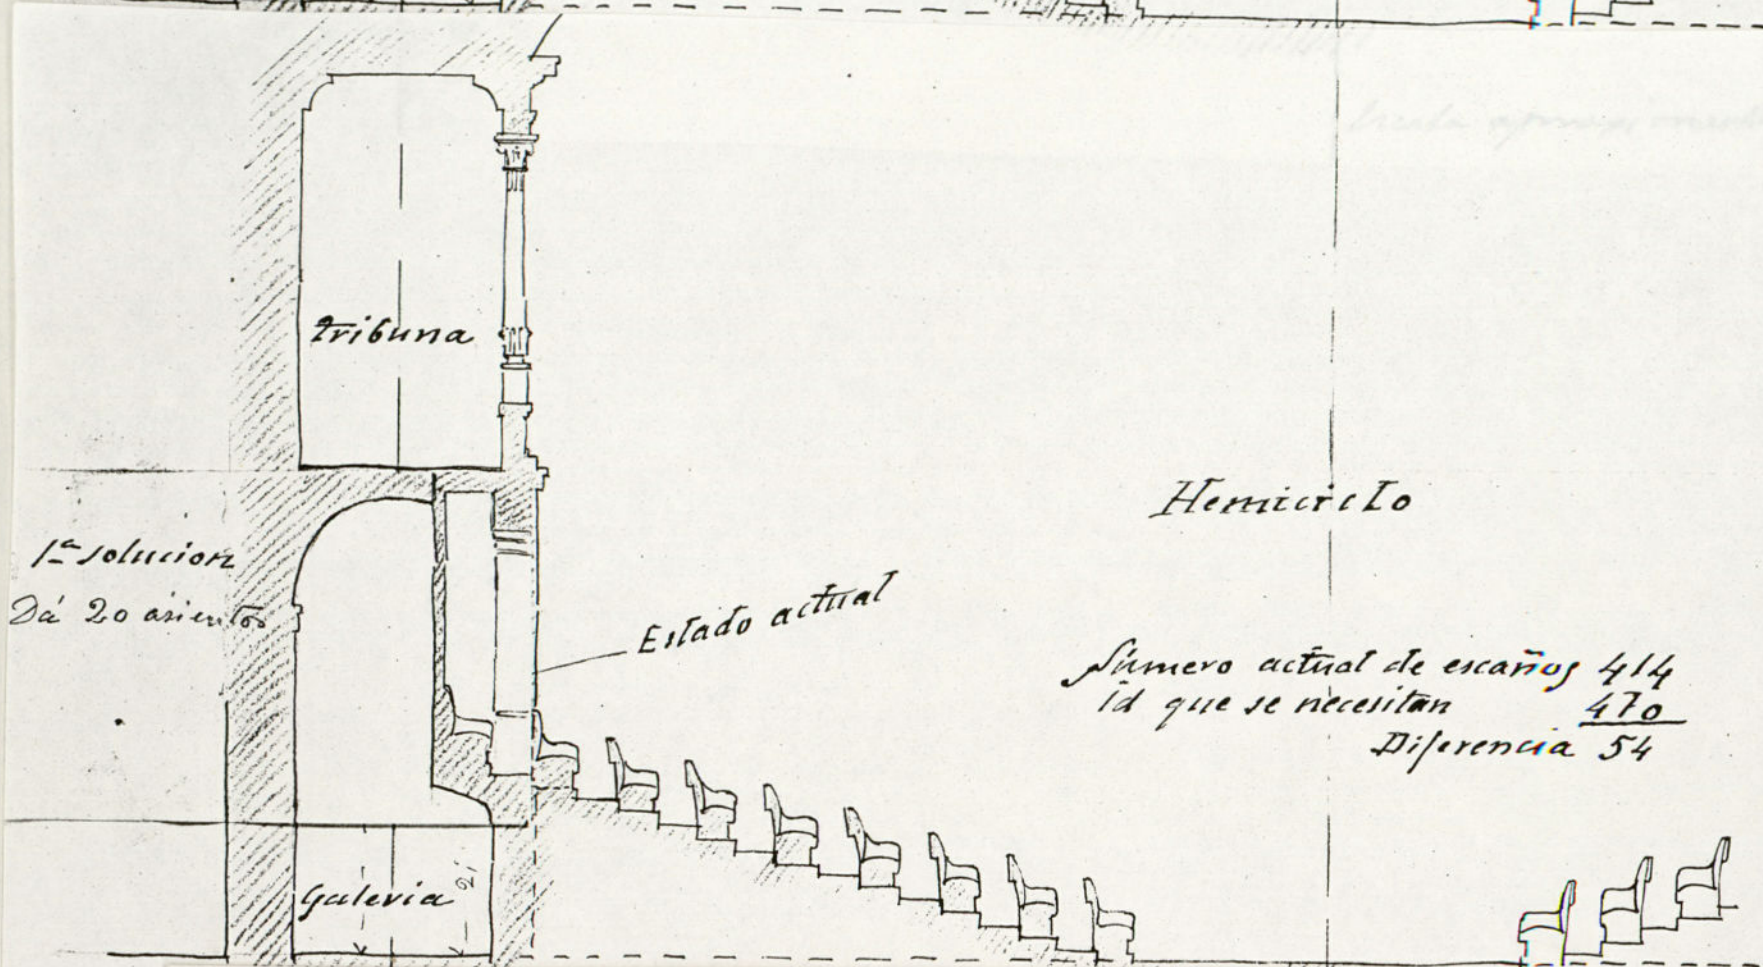 Tribuna
Hemiciclo
1ª solucion
Dá 20 asientos
Estado actual
Número actual de escaños 414
id que se necesitan 470
Diferencia 54
Galeria